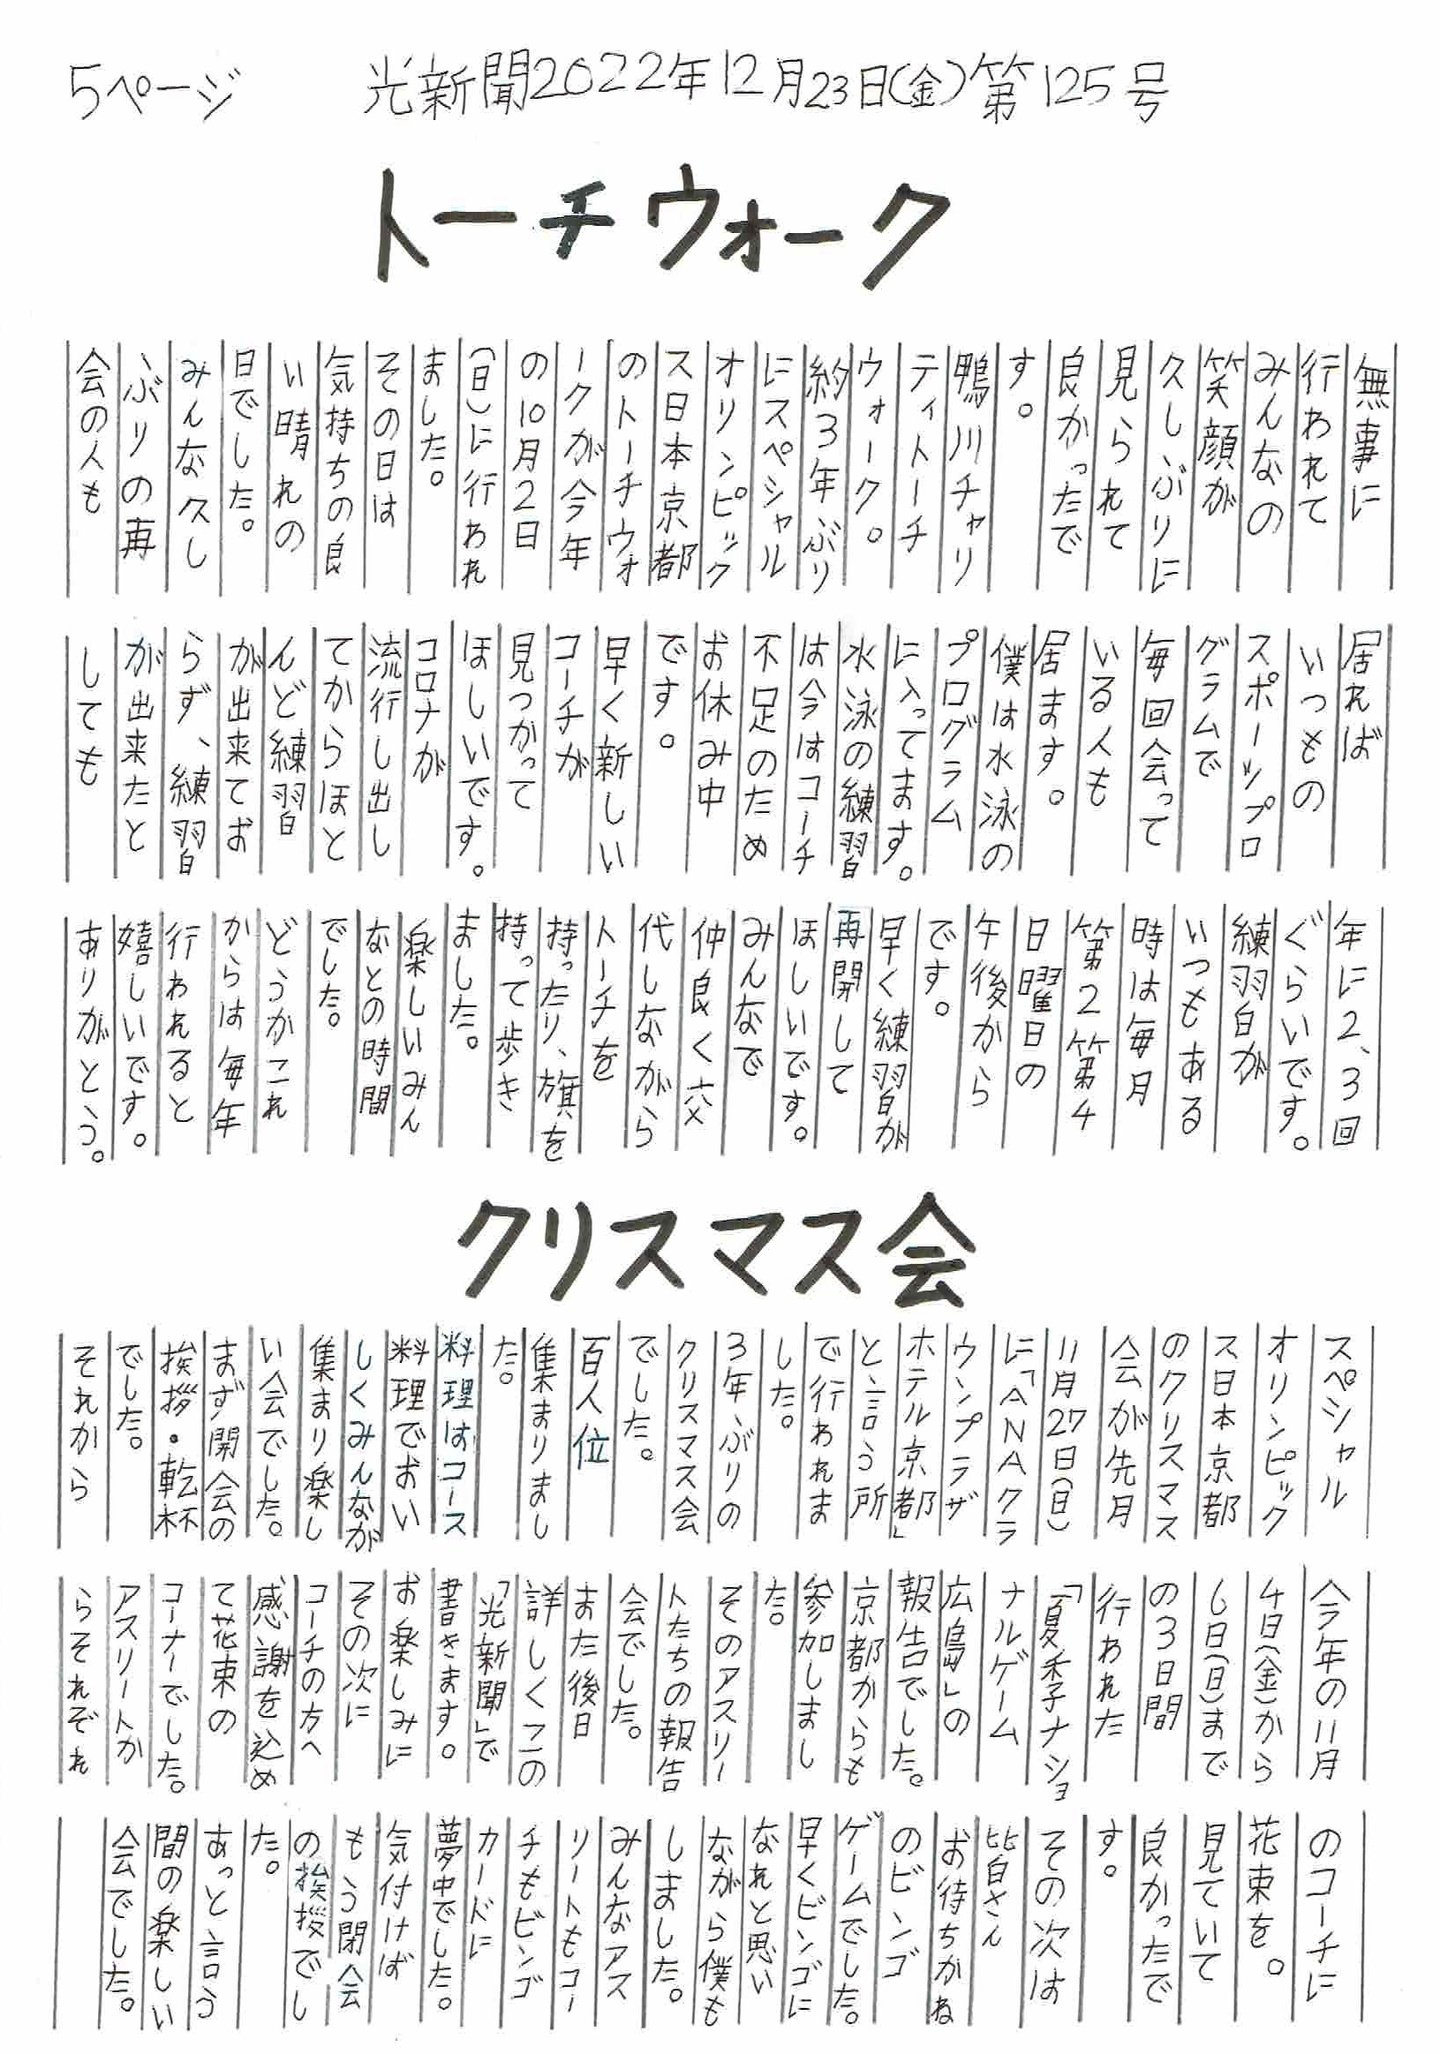 5ページ 光新聞2022年12月23日(金)第125号
トーチウォーク
無事に
行われて
みんなの
笑顔が
久しぶりに
見られて
良かったで
す。
鴨川チャリ
ティトーチ
ウォーク。
約3年ぶり
にスペシャル
オリンピック
ス日本京都
のトーチウォ
ークが今年
の10月2日
(日)に行われ
ました。
その日は
気持ちの良
い晴れの
日でした。
みんな久し
ぶりの再
会の人も
居れば
いつもの
スポーツプロ
グラムで
毎回会って
いる人も
居ます。
僕は水泳の
プログラム
に入ってます。
水泳の練習
は今はコーチ
不足のため
お休み中
です。
早く新しい
コーチが
見つかって
ほしいです。
コロナが
流行し出し
てからほと
んど練習
が出来てお
らず、練習
が出来たと
しても
年に2、3回
ぐらいです。
練習が
いつもある
時は毎月
第2第4
日曜日の
午後から
です。
早く練習が
再開して
ほしいです。
みんなで
仲良く交
代しながら
トーチを
持ったり、旗を
持って歩き
ました。
楽しいみん
なとの時間
でした。
どうかこれ
からは毎年
行われると
嬉しいです。
ありがとう。
クリスマス会
スペシャル
オリンピック
ス日本京都
のクリスマス
会が先月
11月27日(日)
に「ANAクラ
ウンプラザ
ホテル京都」
と言う所
で行われま
した。
3年ぶりの
クリスマス会
でした。
百人位
集まりまし
た。
料理はコース
料理でおい
しくみんなが
集まり楽し
い会でした。
まず開会の
挨拶・乾杯
でした。
それから
今年の11月
4日(金)から
6日(日)まで
の3日間
行われた
「夏季ナショ
ナルゲーム
広島」の
報告でした。
京都からも
参加しまし
た。
そのアスリー
トたちの報告
会でした。
また後日
詳しくこの
「光新聞」で
書きます。
お楽しみに
その次に
コーチの方へ
感謝を込め
て花束の
コーナーでした。
アスリートか
らそれぞれ
のコーチに
花束を。
見ていて
良かったで
す。
その次は
皆さん
お待ちかね
のビンゴ
ゲームでした。
早くビンゴに
なれと思い
ながら僕も
しました。
みんなアス
リートもコー
チもビンゴ
カードに
夢中でした。
気付けば
もう閉会
の挨拶でし
た。
あっと言う
間の楽しい
会でした。